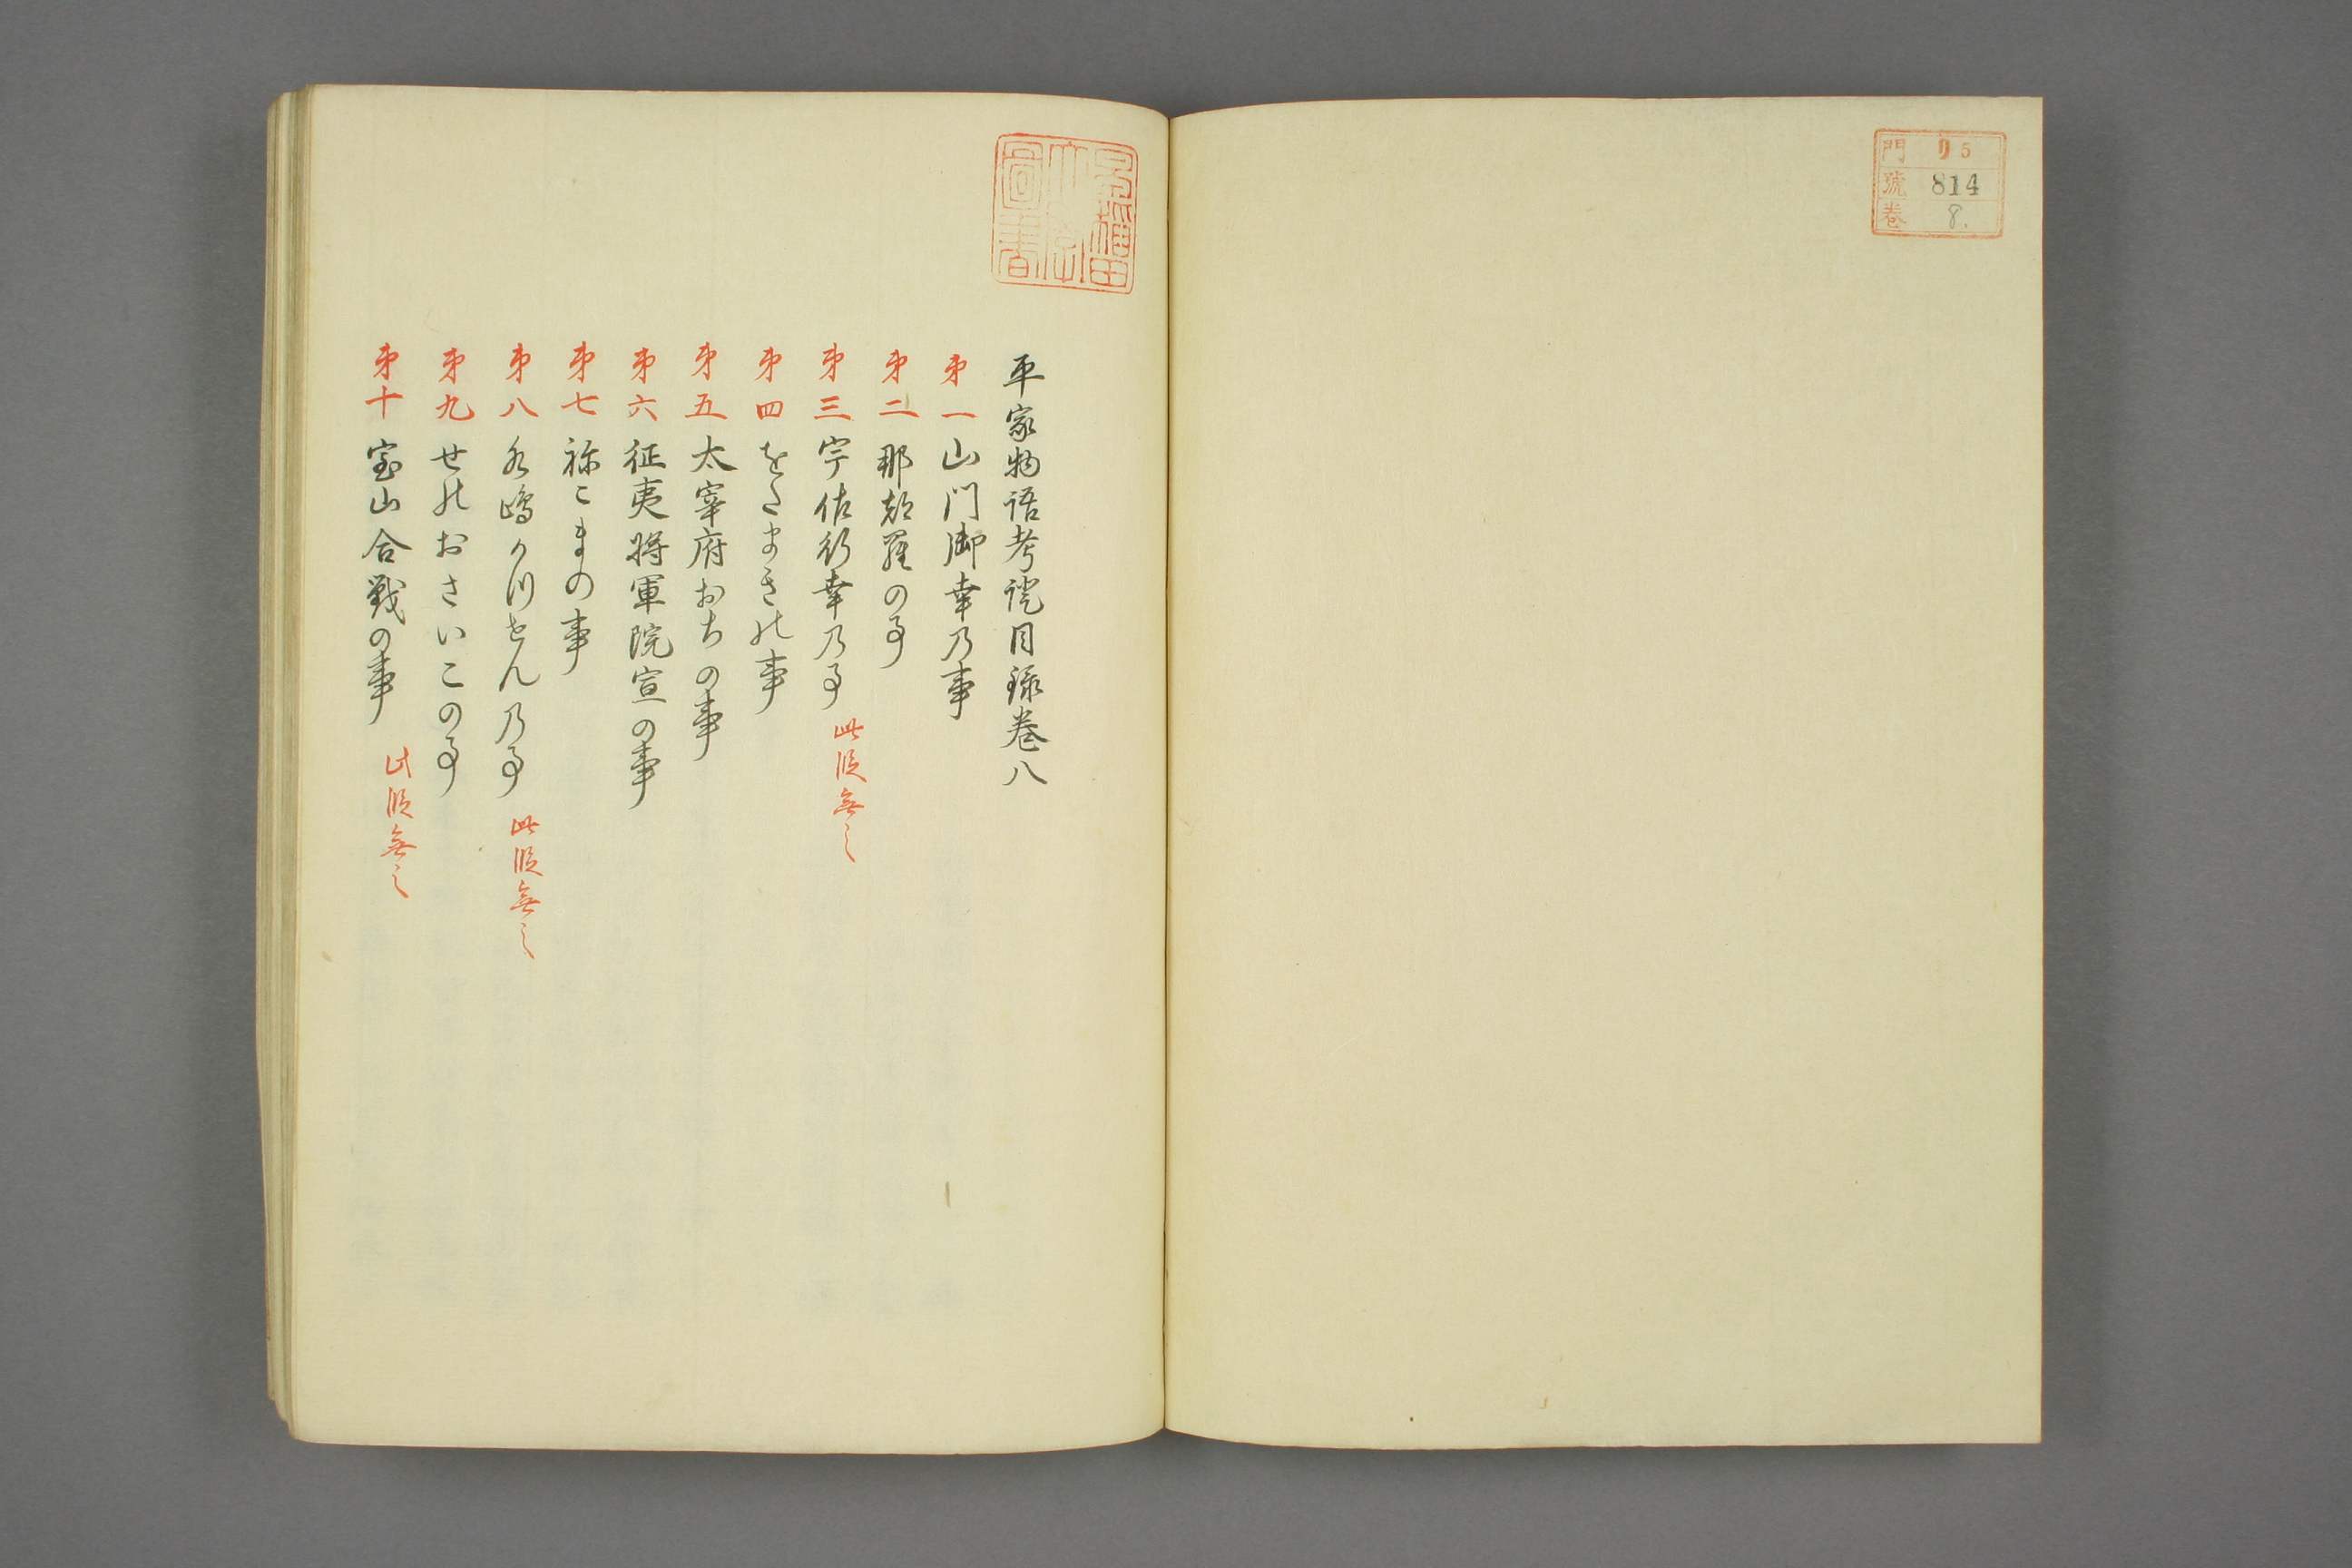 門 リ5
號 814
巻 8.
早稲田
大学
圖書
平家物語考證目録巻八
第一 山門御幸乃事
第二 那都羅の事
第三 宇佐行幸乃事 此段無之
第四 をたまきの事
第五 太宰府おちの事
第六 征夷将軍院宣の事
第七 祢こまの事
第八 水嶋かつせん乃事 此段無之
第九 せのおさいこの事
第十 室山合戦の事 此段無之